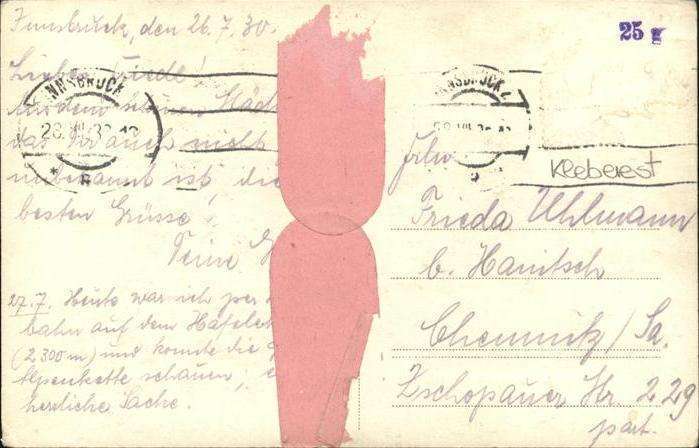 Innsbruck, den 26.7.30.
Lieber Friedl!
Aus dem
das Dir auch nicht
unbekannt ist, die
besten Grüsse
27.7. Heute war ich per
bahn auf dem Hafele
(2300m) und konnte die
Alpenkette schauen;
herrliche Sache.
INNSBRUCK
INNSBRUCK 2
25 g
Kleberest
Frln
Frieda Uhlmann
b. Hanitsch
Chemnitz/Sa.
Zschopauer Str. 229
part.